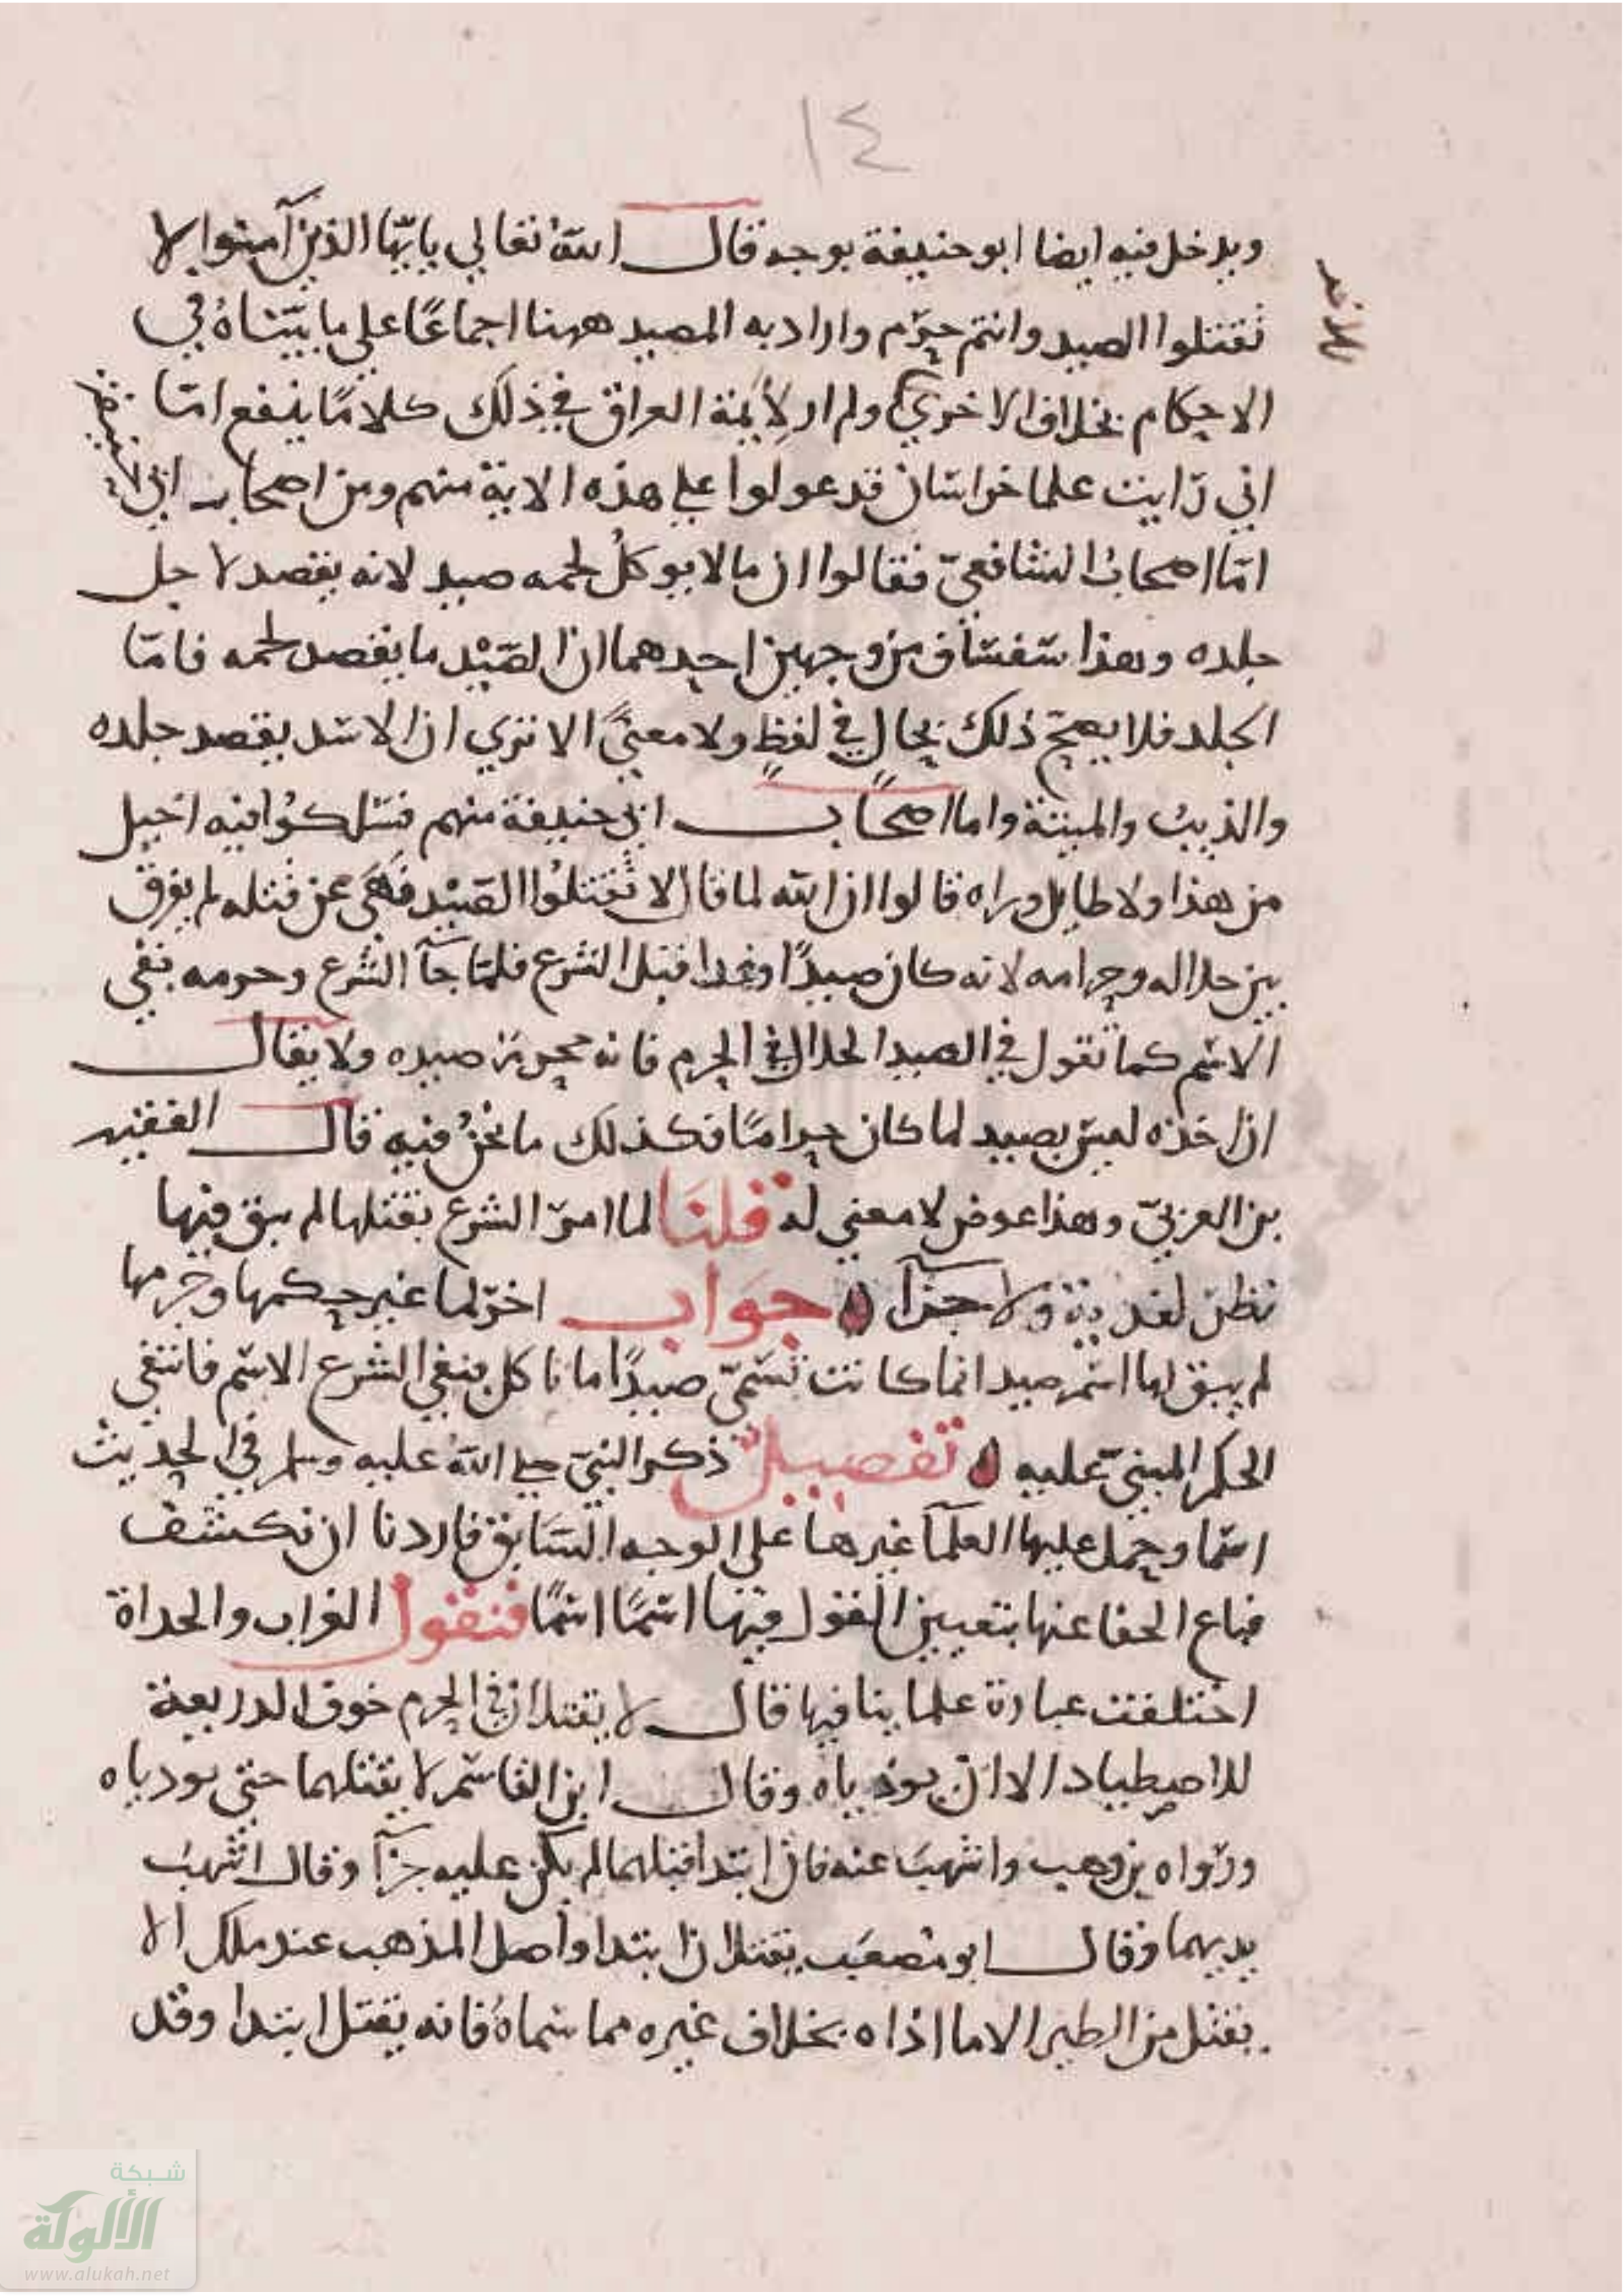 ١٤
ويدخل فيه ايضا ابو حنيفة بوجه قال الله تعالي يايها الذين آمنوا لا
تقتلوا الصيد وانتم حرم واراد به المصيد ههنا اجماعًا علي ما بيّناهُ في
الاحكام بخلاف الاخري ولم ار لأيمة العراق في ذلك كلامًا ينفع امّا
اني رايت علما خراسان قد عولوا علي هذه الاية منهم ومن اصحاب ابي
امّا اصحابُ الشافعيّ فقالوا ان ما لا يوكلُ لحمه صيد لانه يقصد لاجل
جلده وهذا من وجهين احدهما ان الصَيْد ما يقصد لحمه فامّا
الجلد فلا يصح ذلك بحال في لفظٍ ولا معنىً الا تري ان الاسد يقصد جلده
والذيبُ والميتة واما اصحاب ابي حنيفة منهم فسلكوُا فيه اخيل
من هذا ولا طايل وراه قالوا ان الله لما قال لا تقتلُوا الصَيْد فنهَى عن قتله لم يفرق
بين حلاله وحرامه لانه كان صيدًا وغدا قبل الشرع فلمّا جآ الشرع وحرمه بقي
الاسم كما نقول في الصيد الحلال في الحرم فانه محرم صيده ولا يقال
اذا اخذه ليس بصيد لما كان حرامًا فكذلك ما نحنُ فيه قال الفقيه
بن العربيّ وهذا عوض لا معني له قلنَا لما امر الشرع بقتلها لم يبق فيها
نظر لفدية ولا جزآ جوَاب اخر لما غير حكمها وحرمها
لم يبق لها اسم صيد انما كانت تسَمّي صيدًا ما تاكل فنفي الشرع الاسم فانتفي
الحكم المبنيّ عليه تفصيل ذكر النبيّ صلي الله عليه وسلم في الحديث
اسما وحمل عليها العلمآ غيرها على الوجه السَابق فاردنا ان نكشف
قناع الخفا عنها بتعيين القول فيها اسمًا اسمًا فنقول الغراب والحداة
اختلفت عبارة علماينا فيها قال لا يقتلان في الحرم خوف الذريعة
للاصطياد الا ان يوذياه وقال ابن القاسم لا يقتلهما حتي يوذياه
ورواه بن وهب واشهبَ عنه فان ابتدا قتلهما لم يكن عليه جزآ وقال اشهبُ
يديهما وقال ابو مصعَب يقتلان ابتدا واصل المذهب عند ملك الا
يقتل من الطير الا ما اذاه بخلاف غيره مما سماهُ فانه يقتل ابتدا وقد
شبكة
الألوكة
www.alukah.net